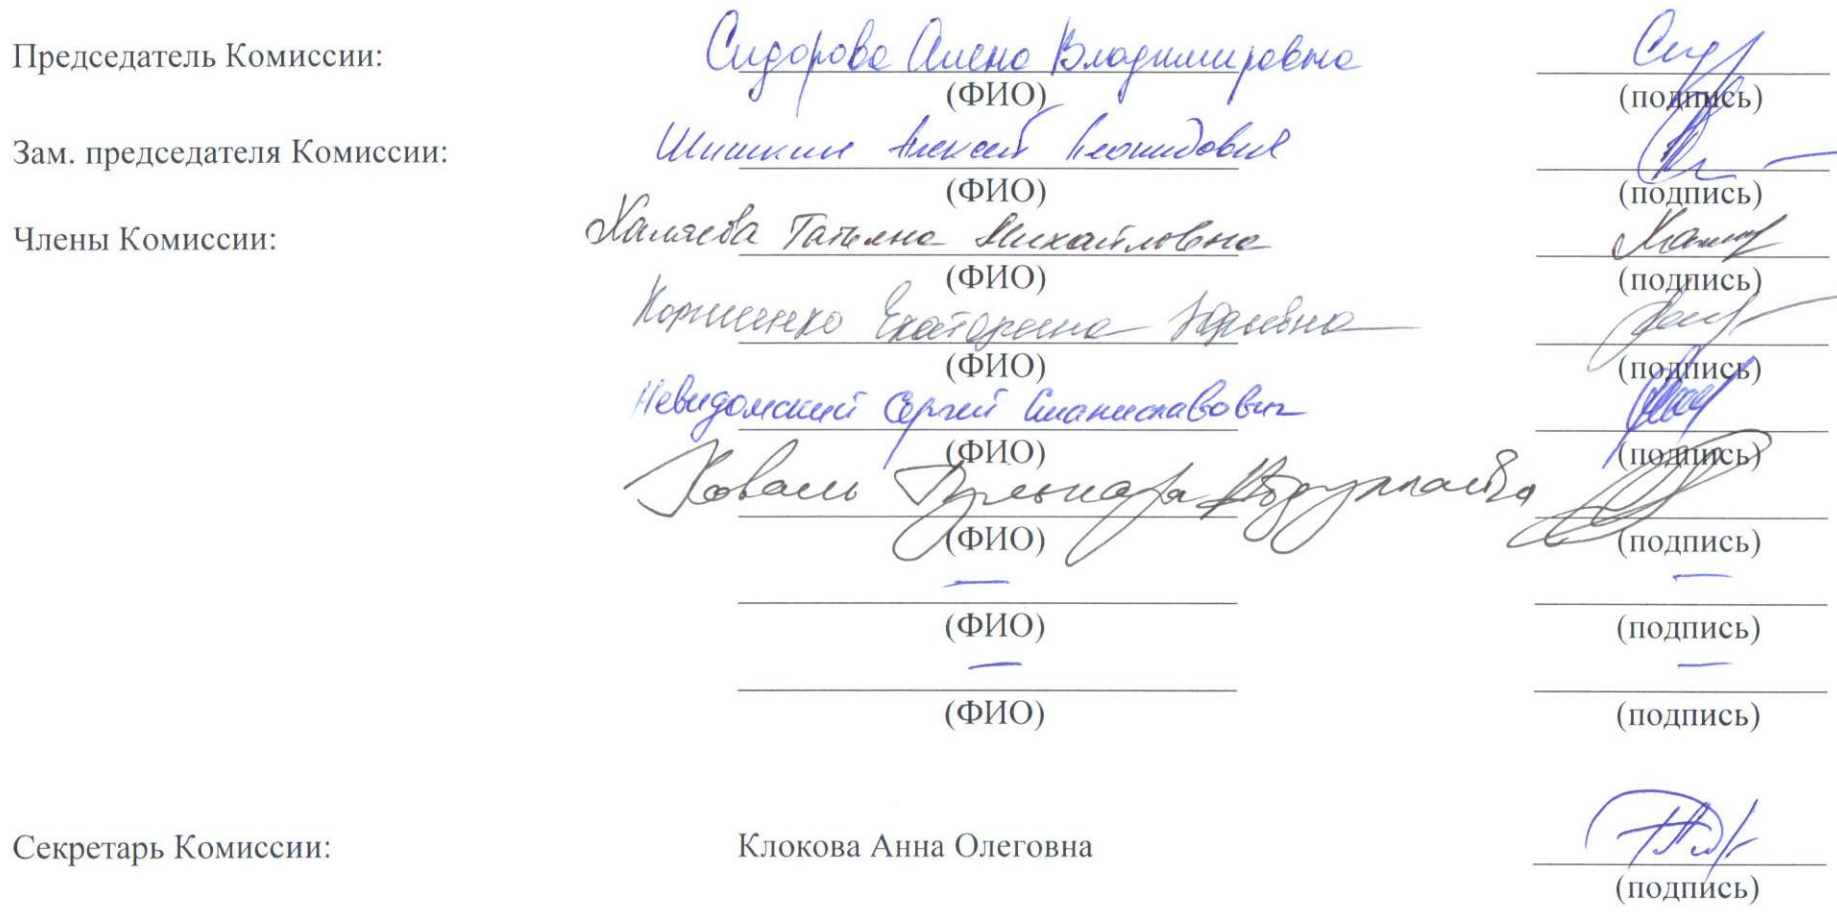 Председатель Комиссии: Сидорова Алена Владимировна
(ФИО) (подпись)
Зам. председателя Комиссии: Шишкин Алексей Леонидович
(ФИО) (подпись)
Члены Комиссии: Халяева Татьяна Михайловна
(ФИО) (подпись)
Корниенко Екатерина Юрьевна
(ФИО) (подпись)
Невидомский Сергей Станиславович
(ФИО) (подпись)
Коваль Гульнара Абдуллаевна
(ФИО) (подпись)
(ФИО) (подпись)
(ФИО) (подпись)
Секретарь Комиссии: Клокова Анна Олеговна
(подпись)